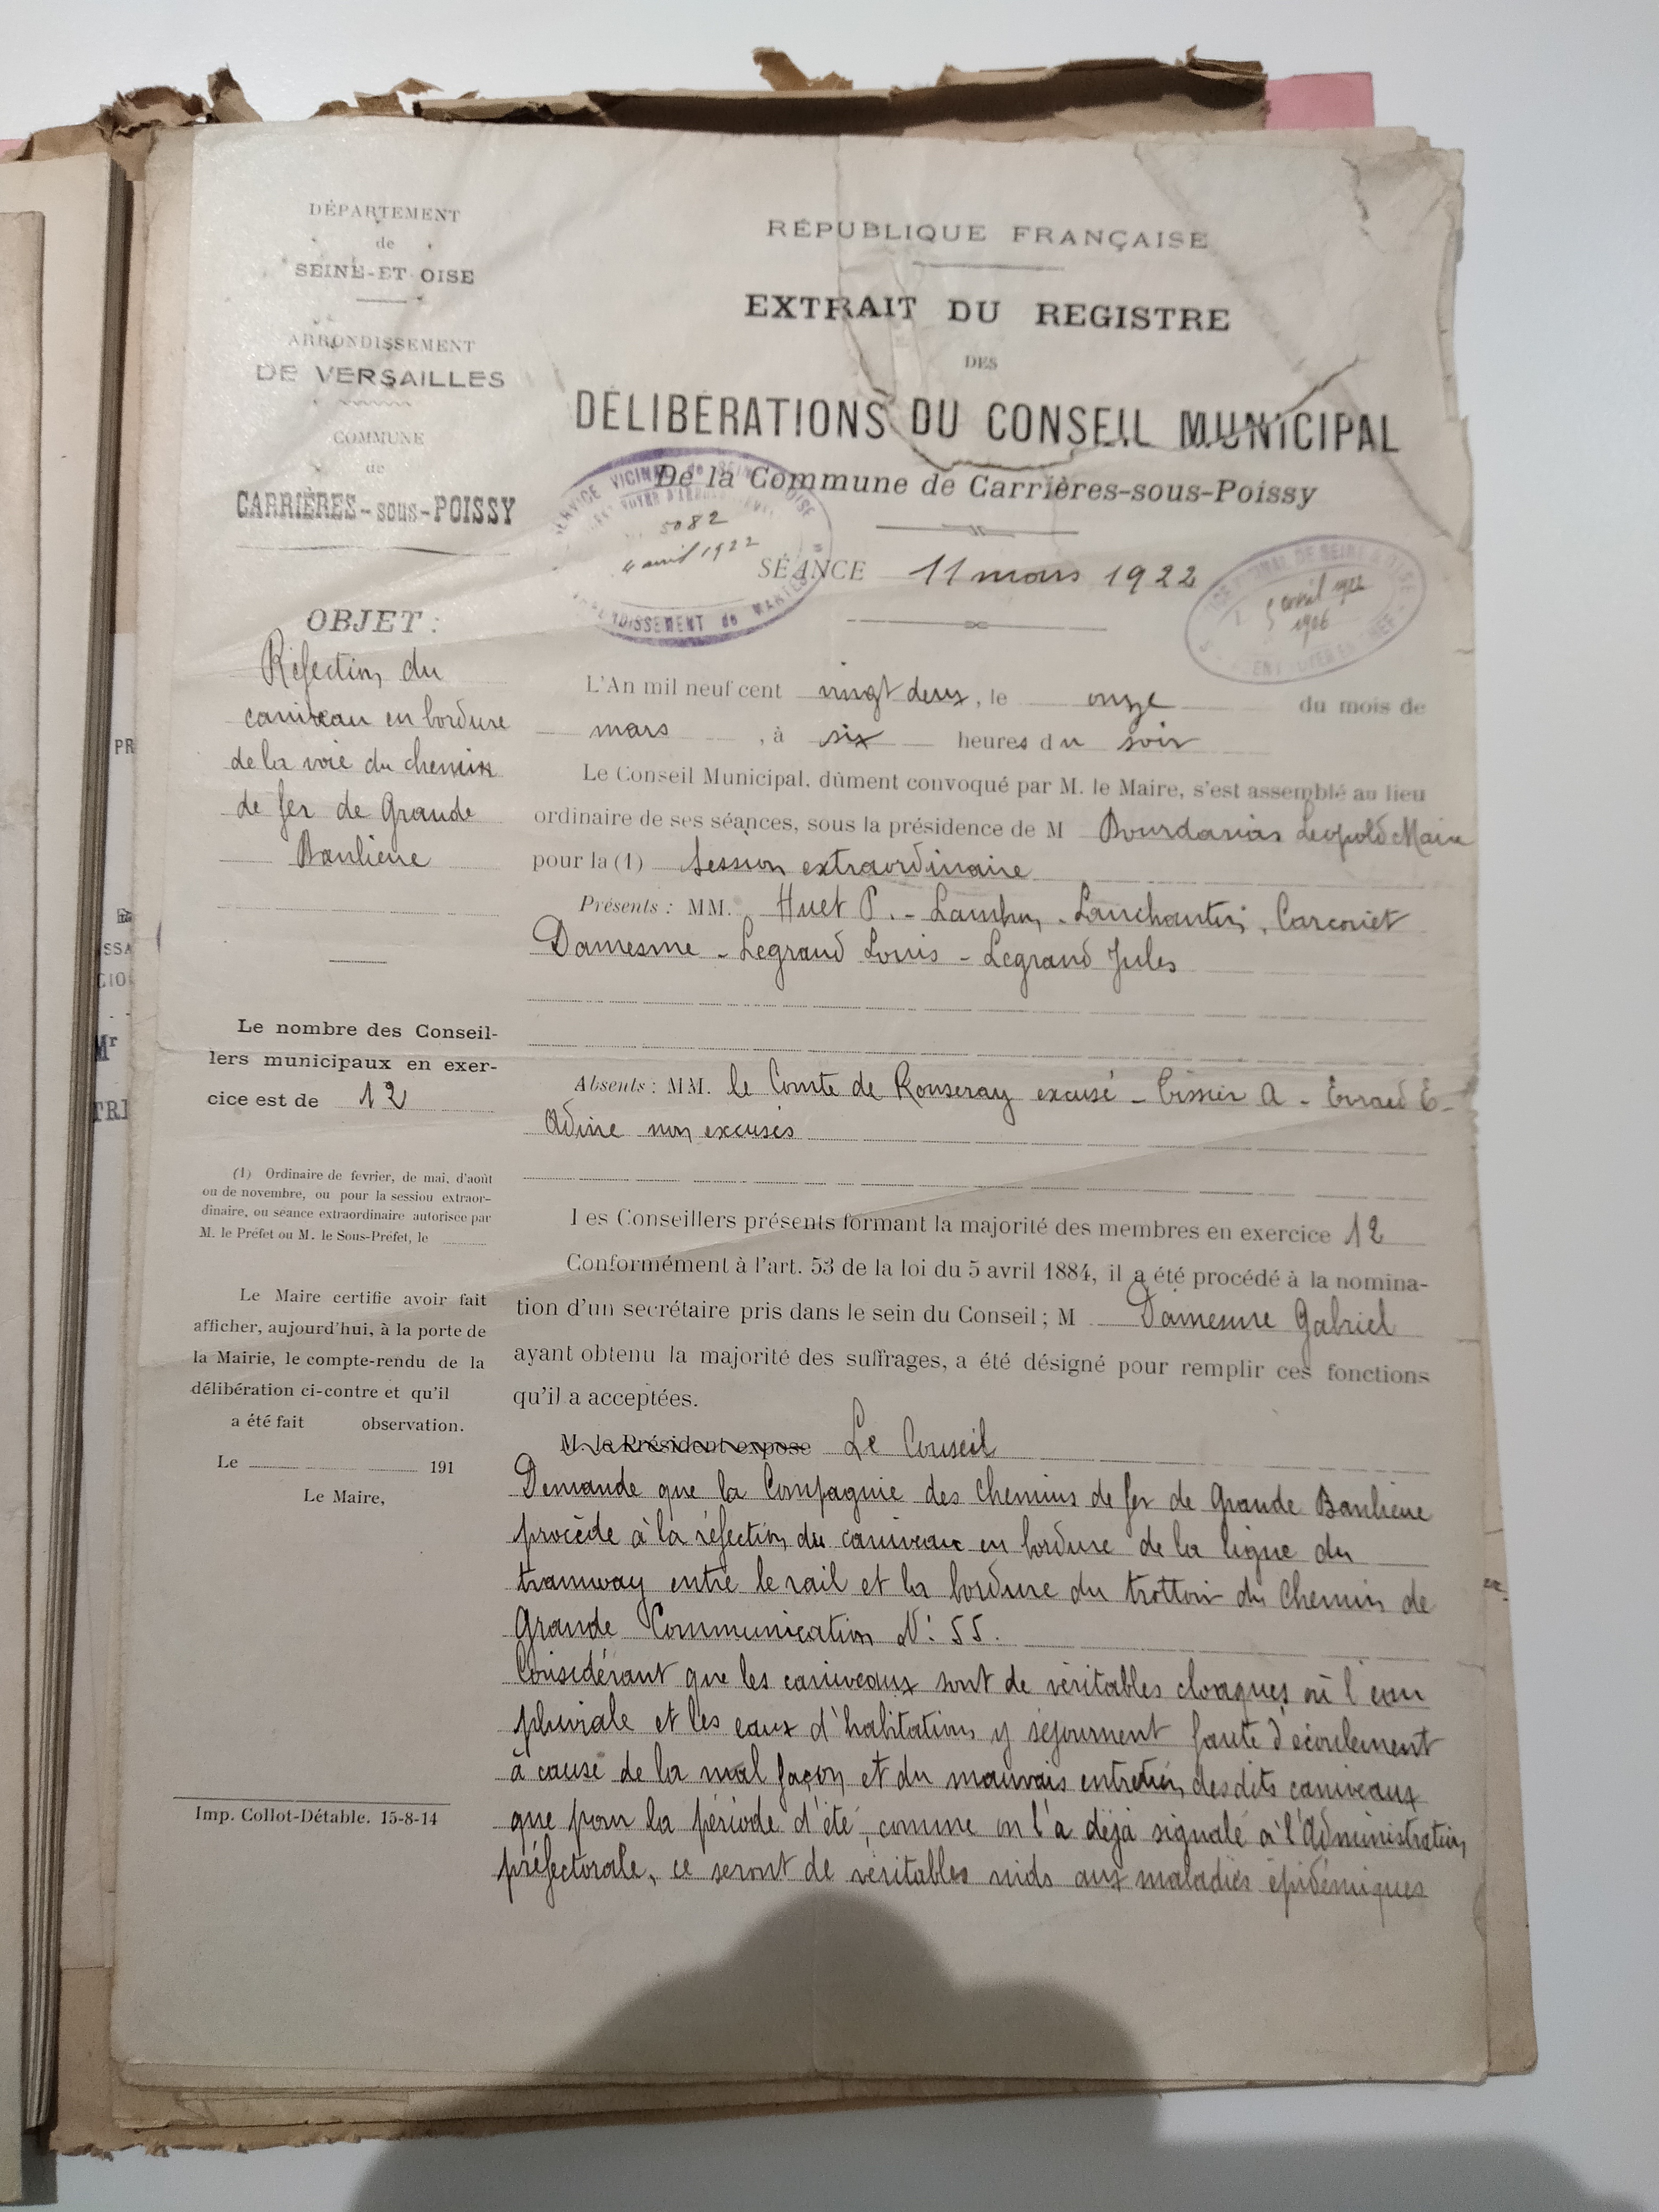 DÉPARTEMENT
de
SEINE-ET-OISE
ARRONDISSEMENT
DE VERSAILLES
COMMUNE
de
CARRIÈRES-sous-POISSY
OBJET :
Réfection du
caniveau en bordure
de la voie du chemin
de fer de Grande
Banlieue
Le nombre des Conseil-
lers municipaux en exer-
cice est de 12
(1) Ordinaire de fevrier, de mai, d'août
ou de novembre, ou pour la session extraor-
dinaire, ou séance extraordinaire autorisée par
M. le Préfet ou M. le Sous-Préfet, le
Le Maire certifie avoir fait
afficher, aujourd'hui, à la porte de
la Mairie, le compte-rendu de la
délibération ci-contre et qu'il
a été fait observation.
Le 191
Le Maire,
Imp. Collot-Détable. 15-8-14
RÉPUBLIQUE FRANÇAISE
EXTRAIT DU REGISTRE
DES
DÉLIBÉRATIONS DU CONSEIL MUNICIPAL
De la Commune de Carrières-sous-Poissy
SERVICE VICINAL de SEINE & OISE
5082
4 avril 1922
ARRONDISSEMENT de MANTES
SÉANCE 11 mars 1922
5 avril 1922
1906
L'An mil neuf cent vingt deux, le onze du mois de
mars, à six heures du soir
Le Conseil Municipal, dûment convoqué par M. le Maire, s'est assemblé au lieu
ordinaire de ses séances, sous la présidence de M Léopold Maire
pour la (1) Session extraordinaire
Présents : MM. Huet P. -
Damesme - Legrand Louis - Legrand Jules
Absents : MM. le Comte de excusé - A - E -
non excusés
Les Conseillers présents formant la majorité des membres en exercice 12
Conformément à l'art. 53 de la loi du 5 avril 1884, il a été procédé à la nomina-
tion d'un secrétaire pris dans le sein du Conseil ; M Damesme Gabriel
ayant obtenu la majorité des suffrages, a été désigné pour remplir ces fonctions
qu'il a acceptées.
M. le Président expose Le Conseil
Demande que la Compagnie des Chemins de fer de Grande Banlieue
procède à la réfection du caniveau en bordure de la ligne du
tramway entre le rail et la bordure du trottoir du Chemin de
Grande Communication N° 55.
Considérant que les caniveaux sont de véritables cloaques où l'eau
pluviale et les eaux d'habitation y séjournent faute d'écoulement
à cause de la mal façon et du mauvais entretien desdits caniveaux
que pour la période d'été, comme on l'a déjà signalé à l'Administration
préfectorale, ce seront de véritables nids aux maladies épidémiques